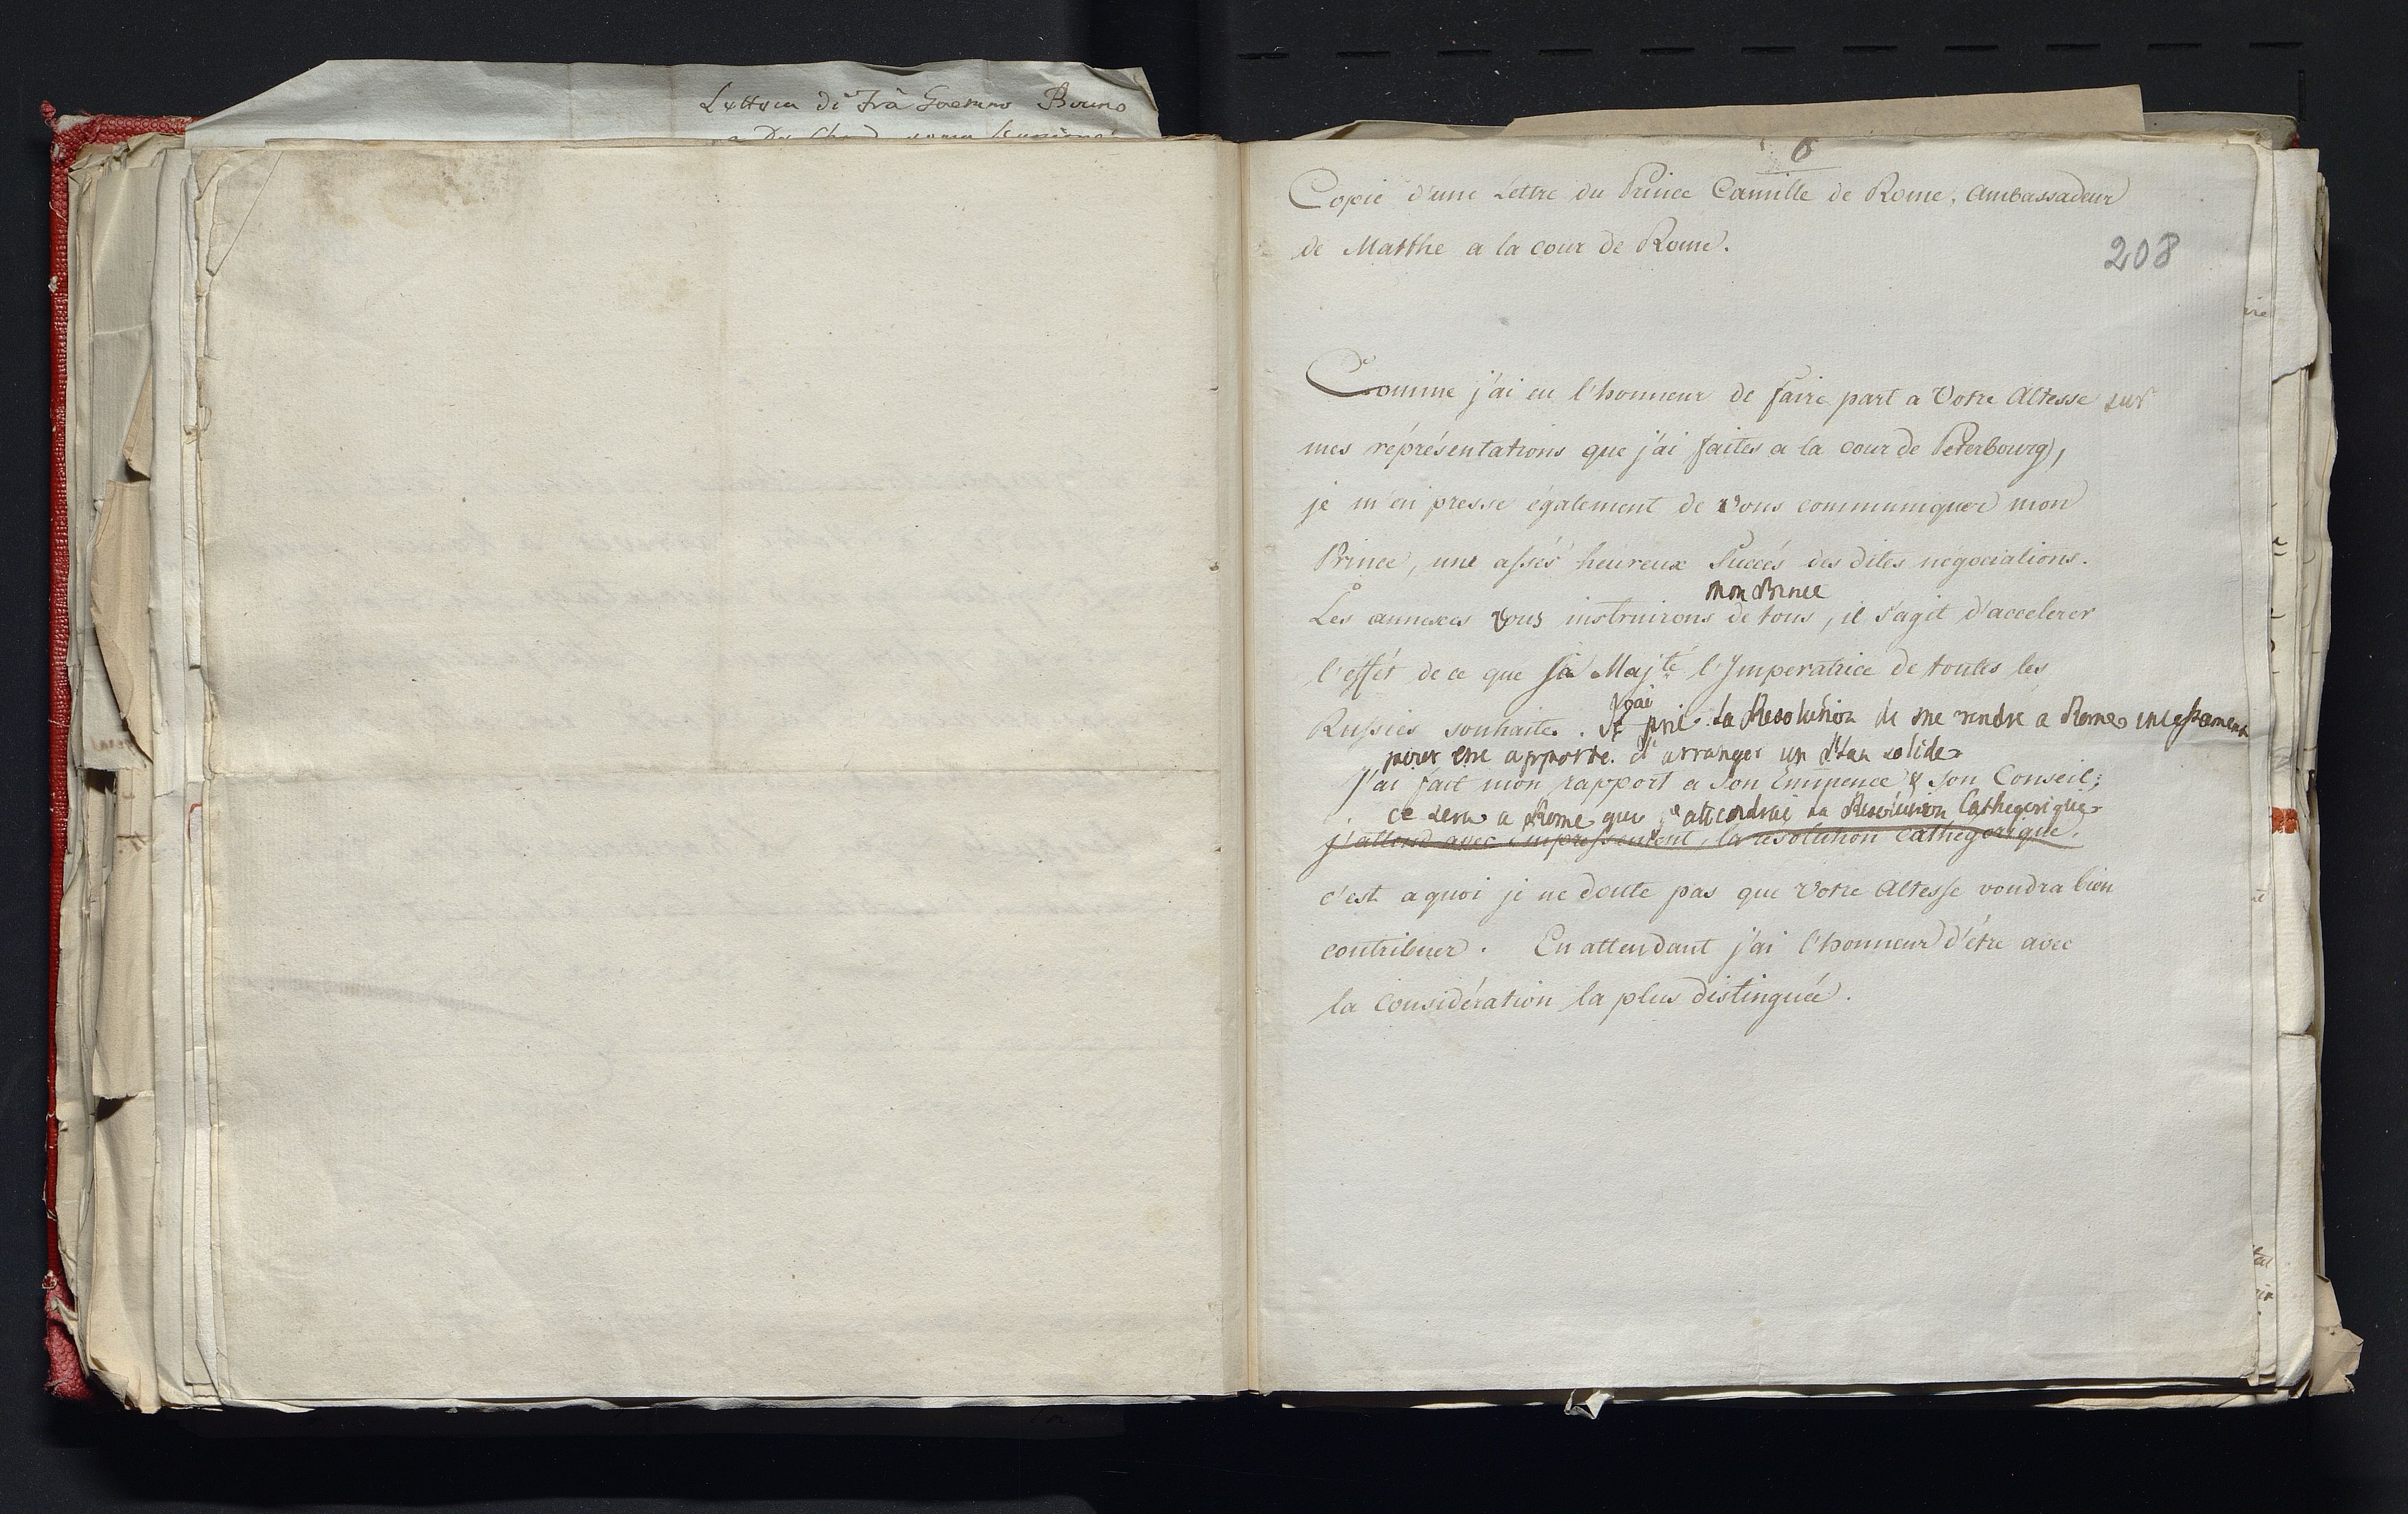 Lettera di Frà Gaetano Bruno
6
Copie d'une Lettre du Prince Camille de Rome, Ambassadeur
de Malthe a la cour de Rome.
208
Comme j'ai eu l'honneur de faire part a Votre Altesse sur
mes réprésentations que j'ai faites a la cour de Peterbourg,
je m'en presse également de vous communiquer mon
Prince, une assés heureux Succés des dites negociations.
mon Prince
Les annexes vous instruirons de tous, il s'agit d'accelerer
l'effét de ce que sa Maj.té l'Imperatrice de toutes les
j'ai
Russies souhaite. et pris la Resolution de me rendre a Rome incessament
pour être apporté d'arranger un Plan solide
J'ai fait mon rapport a Son Eminence & Son Conseil;
ce sera a Rome que j'attendrai la Resolution Cathegorique
j'attend avec empressement, la résolution cathégorique.
c'est a quoi je ne doute pas que Votre Altesse voudra bien
contribuer. En attendant j'ai l'honneur d'étre avec
la considération la plus distinguée.